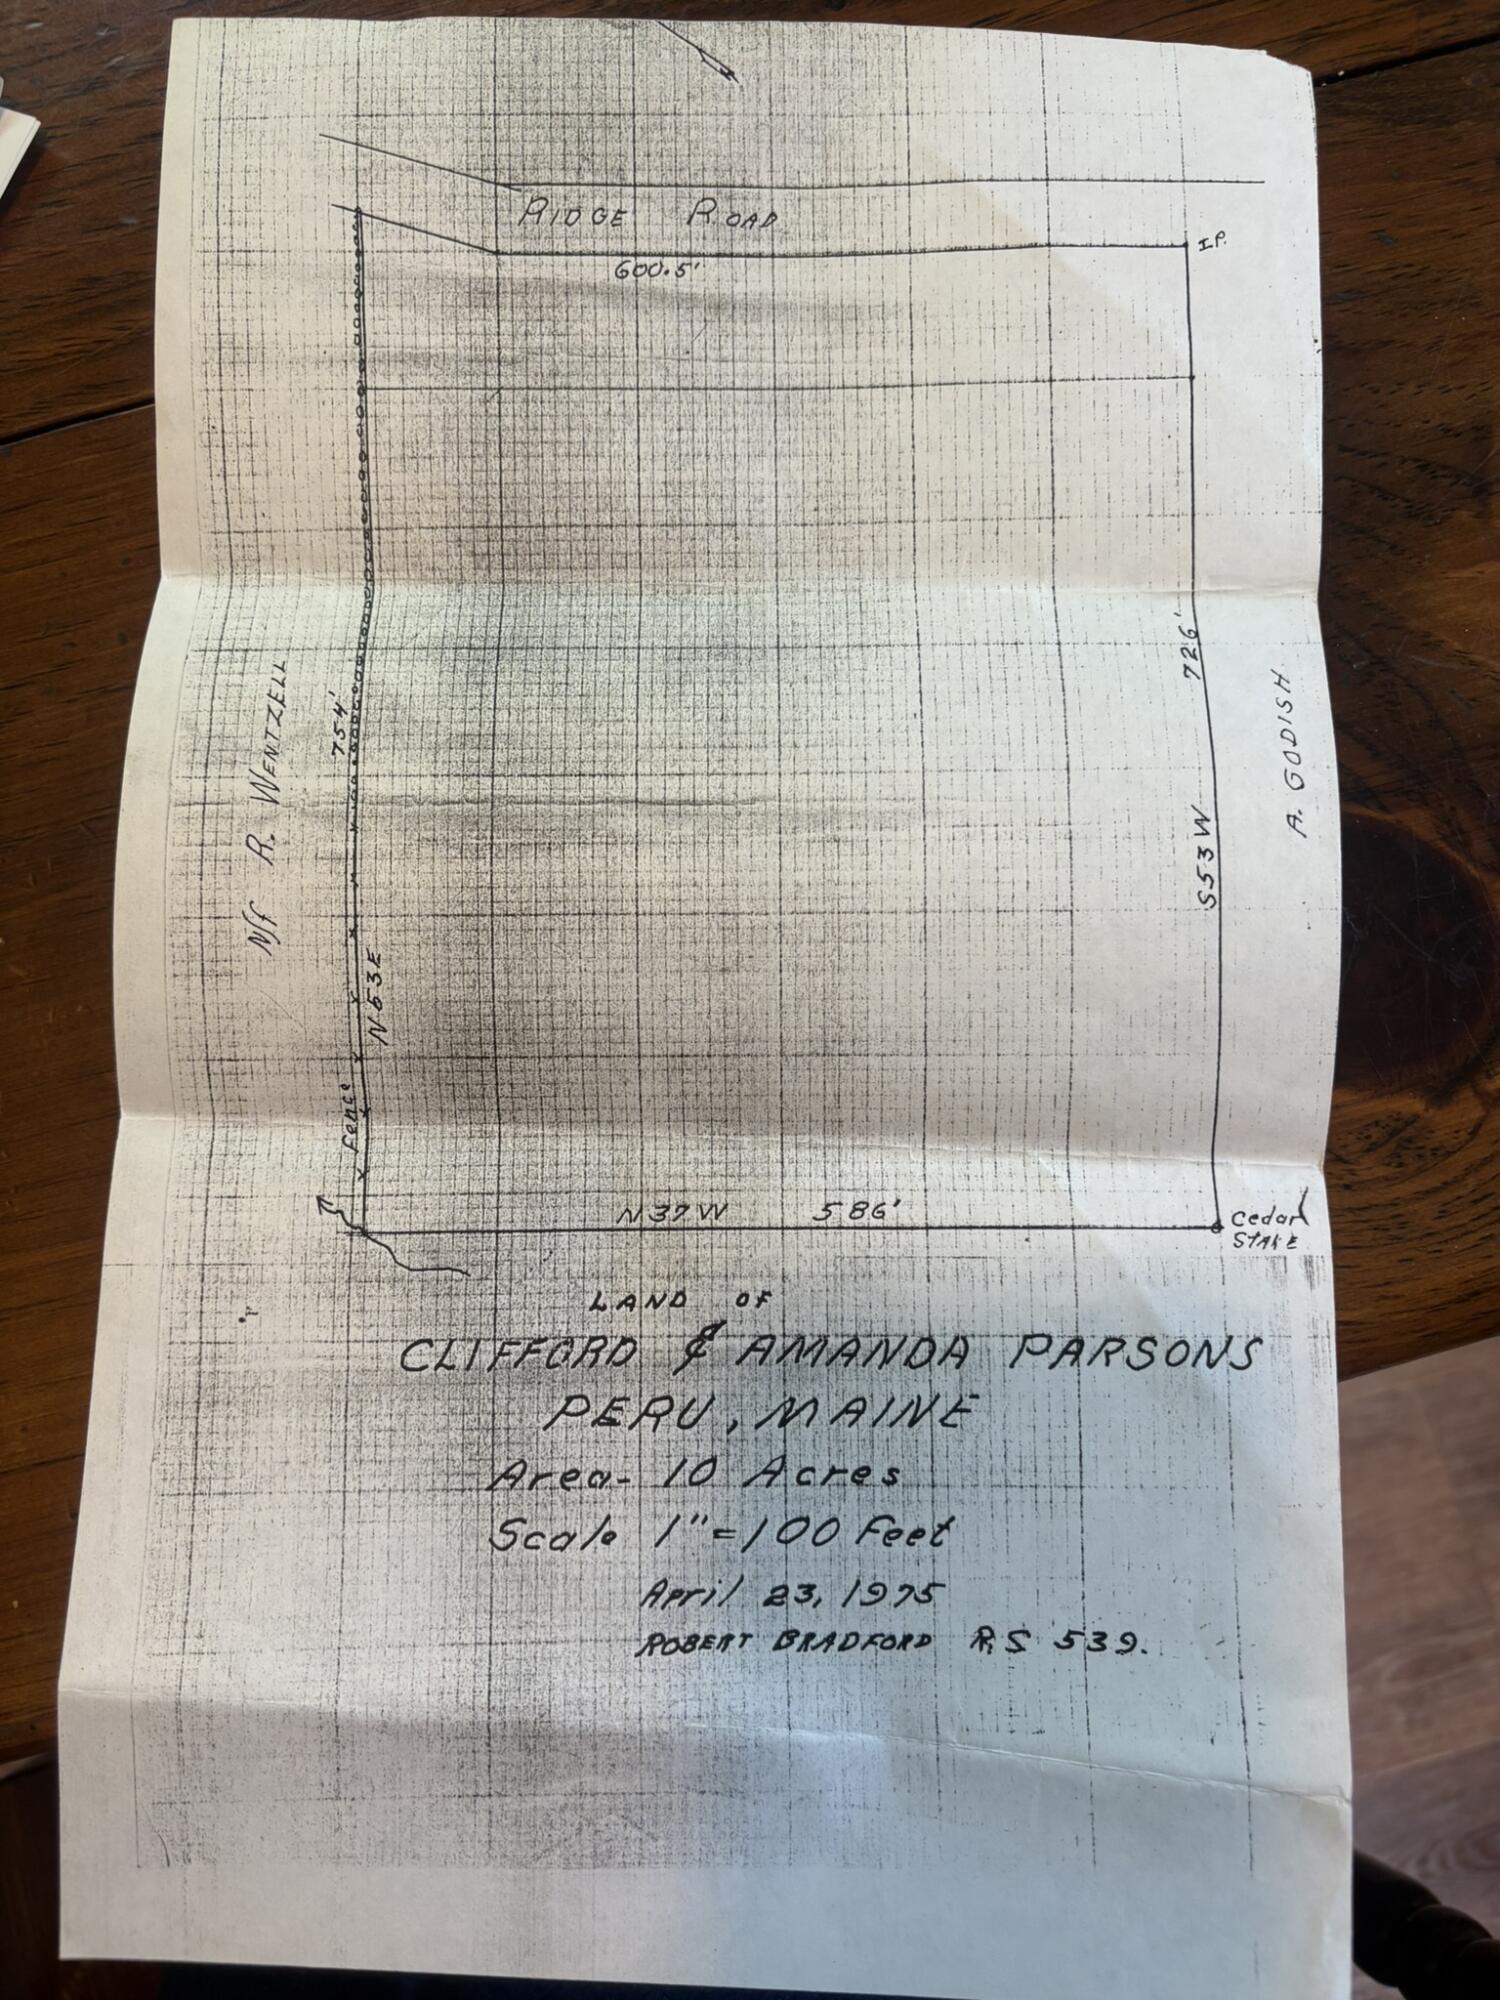 RIDGE ROAD
I.P.
600.5'
726'
N/F R. WENTZELL
754'
A. GODISH
S53W
N53E
Fence
N37W 586'
Cedar
STAKE
LAND OF
CLIFFORD & AMANDA PARSONS
PERU, MAINE
Area- 10 Acres
Scale 1"=100 Feet
April 23, 1975
ROBERT BRADFORD R.S 539.